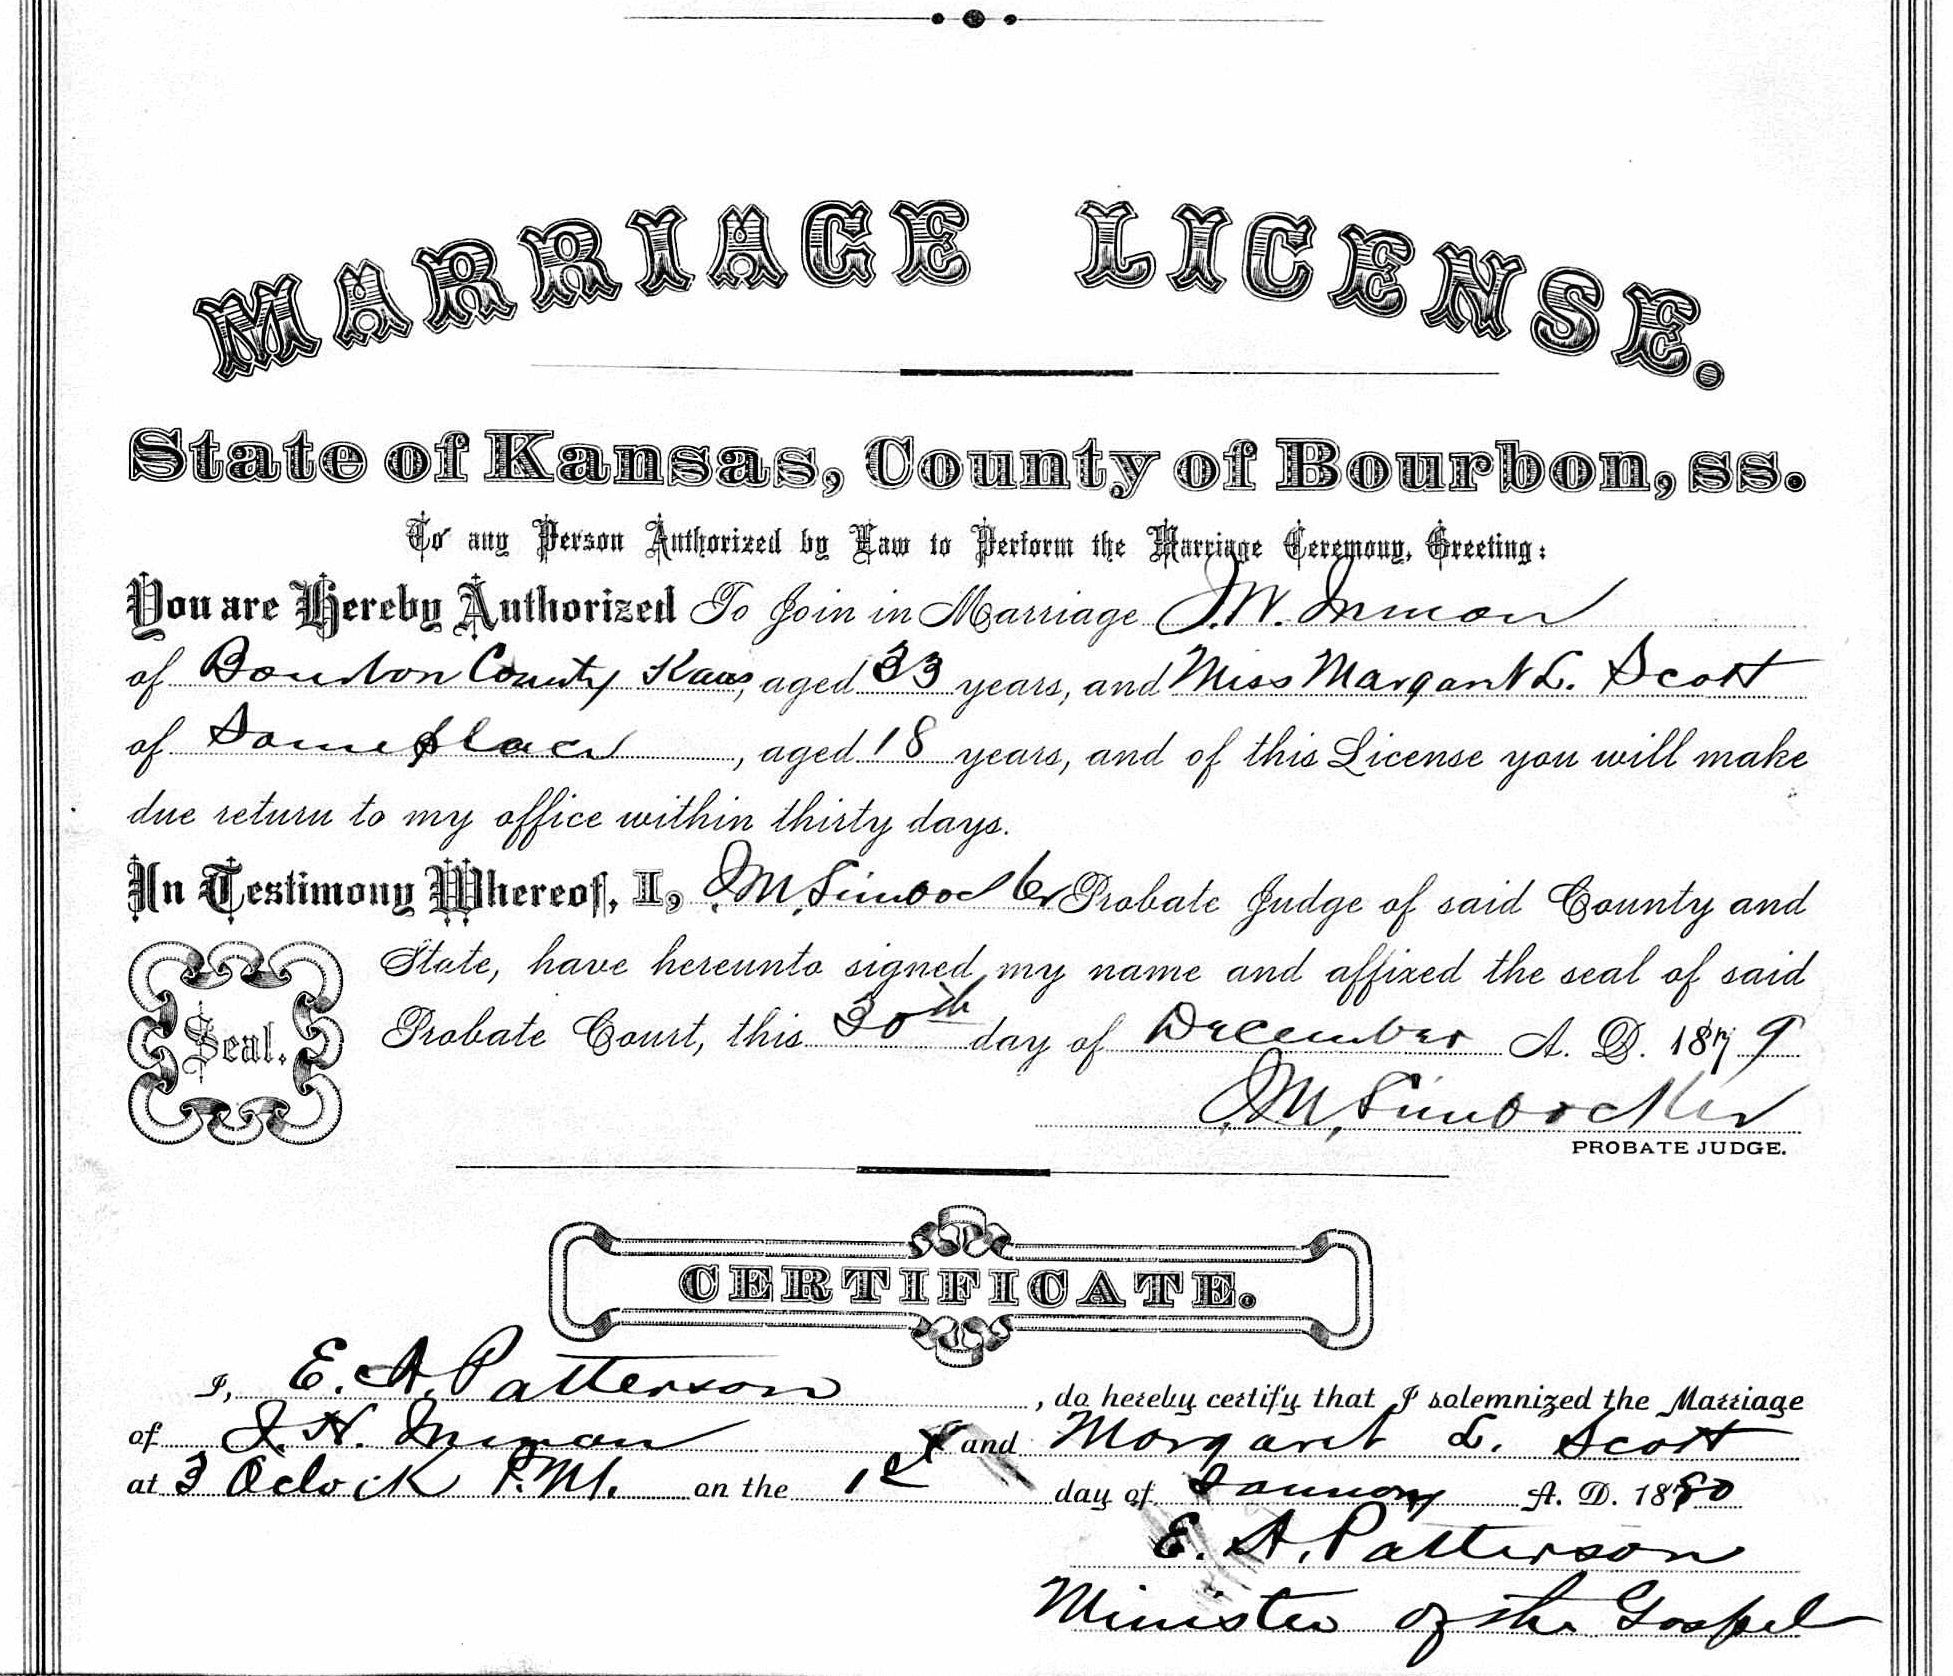 MARRIAGE LICENSE.
State of Kansas, County of Bourbon, ss.
To any Person Authorized by Law to Perform the Marriage Ceremony, Greeting:
You are Hereby Authorized To Join in Marriage J. W. Inman
of Bourbon County Kans, aged 33 years, and Miss Margaret L. Scott
of Same place, aged 18 years, and of this License you will make
due return to my office within thirty days.
In Testimony Whereof, I, J. M. Limbocker Probate Judge of said County and
State, have hereunto signed my name and affixed the seal of said
Seal.
Probate Court, this 30th day of December A. D. 1879
J. M. Limbocker
PROBATE JUDGE.
CERTIFICATE.
I, E. A. Patterson, do hereby certify that I solemnized the Marriage
of J. H. Inman and Margaret L. Scott
at 3 Oclock P.M. on the 1st day of January A. D. 1880
E. A. Patterson
Minister of the Gospel